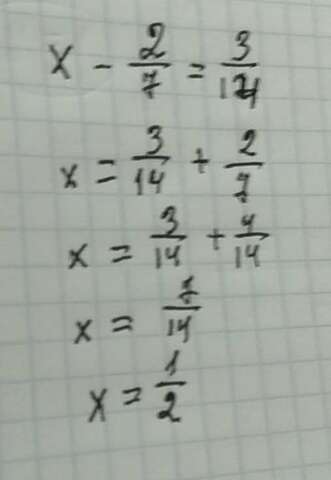 x - 2/7 = 3/14
x = 3/14 + 2/7
x = 3/14 + 4/14
x = 7/14
x = 1/2